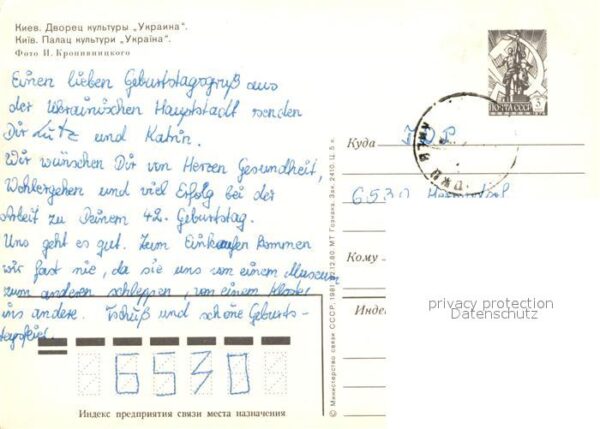 Киев. Дворец культуры „Украина“.
Київ. Палац культури „Україна“.
Фото И. Кропивницкого
Einen lieben Geburtstagsgruß aus
der Ukrainischen Hauptstadt senden
Dir Lutz und Katrin.
Wir wünschen Dir von Herzen Gesundheit,
Wohlergehen und viel Erfolg bei der
Arbeit zu Deinem 42. Geburtstag.
Uns geht es gut. Zum Einkaufen kommen
wir fast nie, da sie uns von einem Museum
zum anderen schleppen, von einem Kloster
ins andere. Tschüß und schöne Geburts-
tagsfeier.
6530
Индекс предприятия связи места назначения
© Министерство связи СССР, 1981. 12.12.80. МТ Гознака. Зак. 2410. Ц. 5 к.
ПОЧТА СССР
Куда
DDR
6530
Кому
Инде
privacy protection
Datenschutz